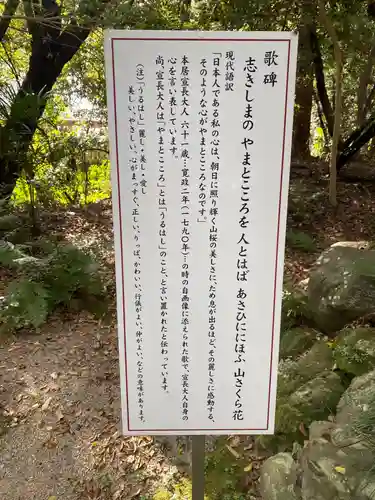 歌碑
志きしまの やまとこころを 人とはば あさひににほふ 山さくら花
現代語訳
「日本人である私の心は、朝日に照り輝く山桜の美しさに、ため息が出るほど、その麗しさに感動する、
そのような心がやまとこころなのです。」
本居宣長大人 六十一歳…寛政二年(一七九〇年)…の時の自画像に添えられた歌で、宣長大人自身の
心を言い表しています。
尚、宣長大人は「やまとこころ」とは「うるはし」のこと、と言い置かれたと伝わっています。
(注)「うるはし」麗し・美し・愛し
美しい、やさしい、心がまっすぐ、りっぱ、かわいい、行儀がよい、仲がよい、などの意味があります。